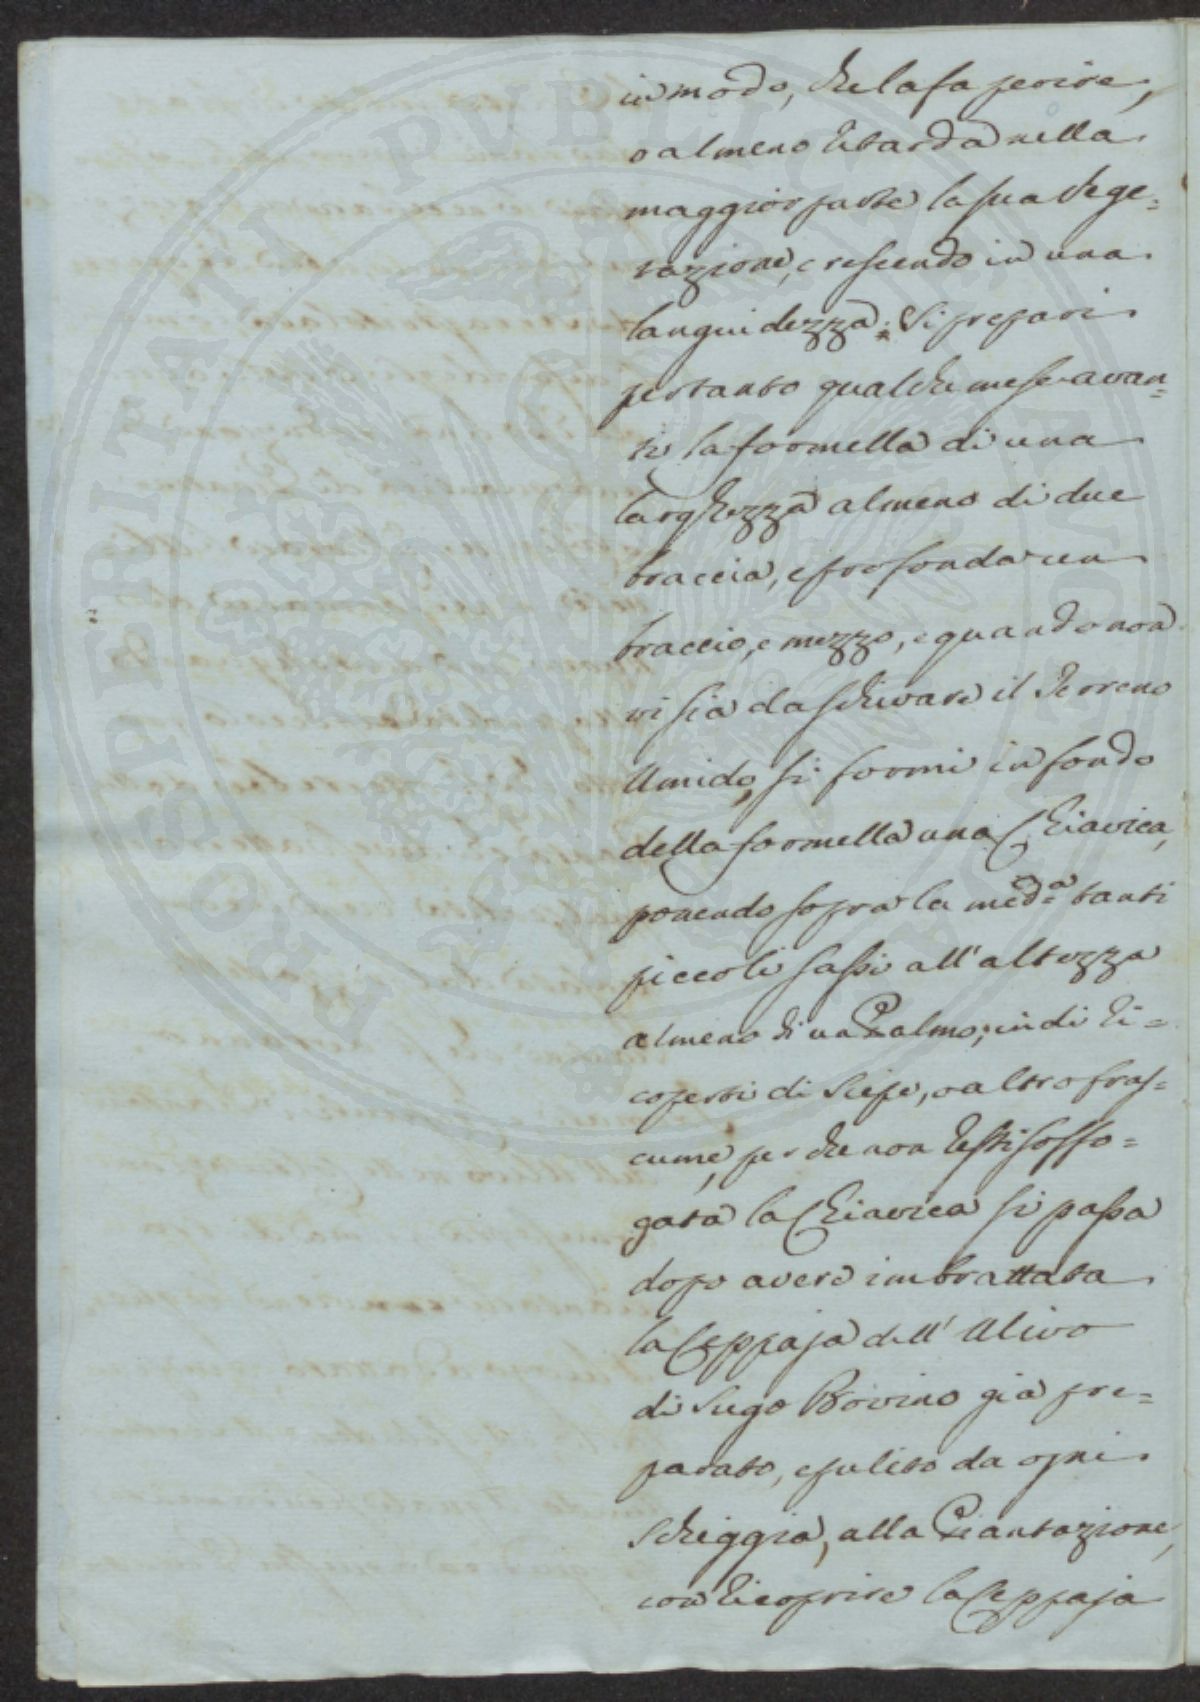 PROSPERITATI PVBLICAE AV
in modo, che la fa perire,
o almeno ritarda nella
maggior parte la sua vege=
tazione, crescendo in una
languidezza: Si prepari
pertanto qualche mese avan=
ti la formella di una
larghezza almeno di due
braccia, e profonda un
braccio, e mezzo, e quando non
vi sia da schivare il Terreno
Umido, si formi in fondo
della formella una Chiavica,
ponendo sopra la med.a tanti
piccoli sassi all'altezza
almeno di un Palmo; indi ri=
coperti di Siepe, o altro fras=
cume, perche non resti soffo=
gata la Chiavica si passa
dopo avere imbrattata
la Ceppaja dell' Ulivo
di Sugo Bovino già pre=
parato, e pulito da ogni
Scheggia, alla Piantazione,
con ricoprire la Ceppaja